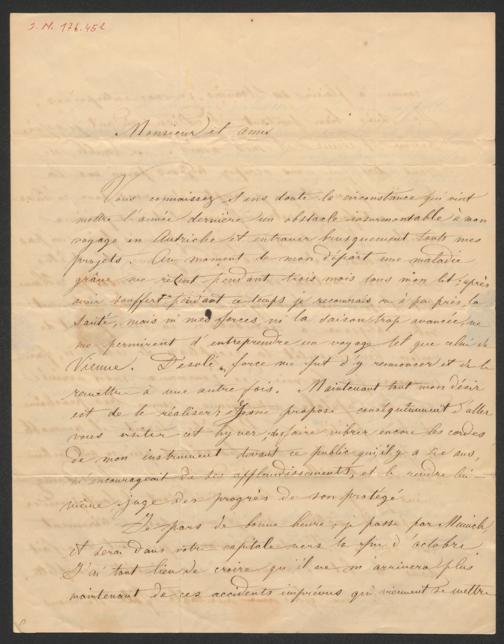 J. N. 176.452
Monsieur et ami
Vous connaissez sans doute la circonstance qui vint
mettre l'année dernière un obstacle insurmontable à mon
voyage en Autriche et entraver brusquement touts mes
projets. Au moment de mon départ une maladie
grâve me retint pendant trois mois sous mon lit; après
avoir souffert pendant ce temps je recouvrais à peu près la
santé, mais ni mes forces ni la saison trop avancée, ne
me permirent d'entreprendre un voyage tel que celui de
Vienne. Désolé, force me fut d'y renoncer et de le
remettre à une autre fois. Maintenant tout mon désir
est de le réaliser; J'ose propose conséquemment d'aller
vous visiter cet hyver, faire vibrer encore les cordes
de mon instrument devant ce public qui, il y a ans,
m'encourageait de ses applaudissements, et le rendre lui-
même juge des progrès de son protégé.
Je pars de bonne heure; je passe par Munich
et serai dans votre capitale vers la fin d'octobre
J'ai tout lieu de croire qu'il ne m'arrivera plus
maintenant de ces accidents imprévus qui viennent se mettre